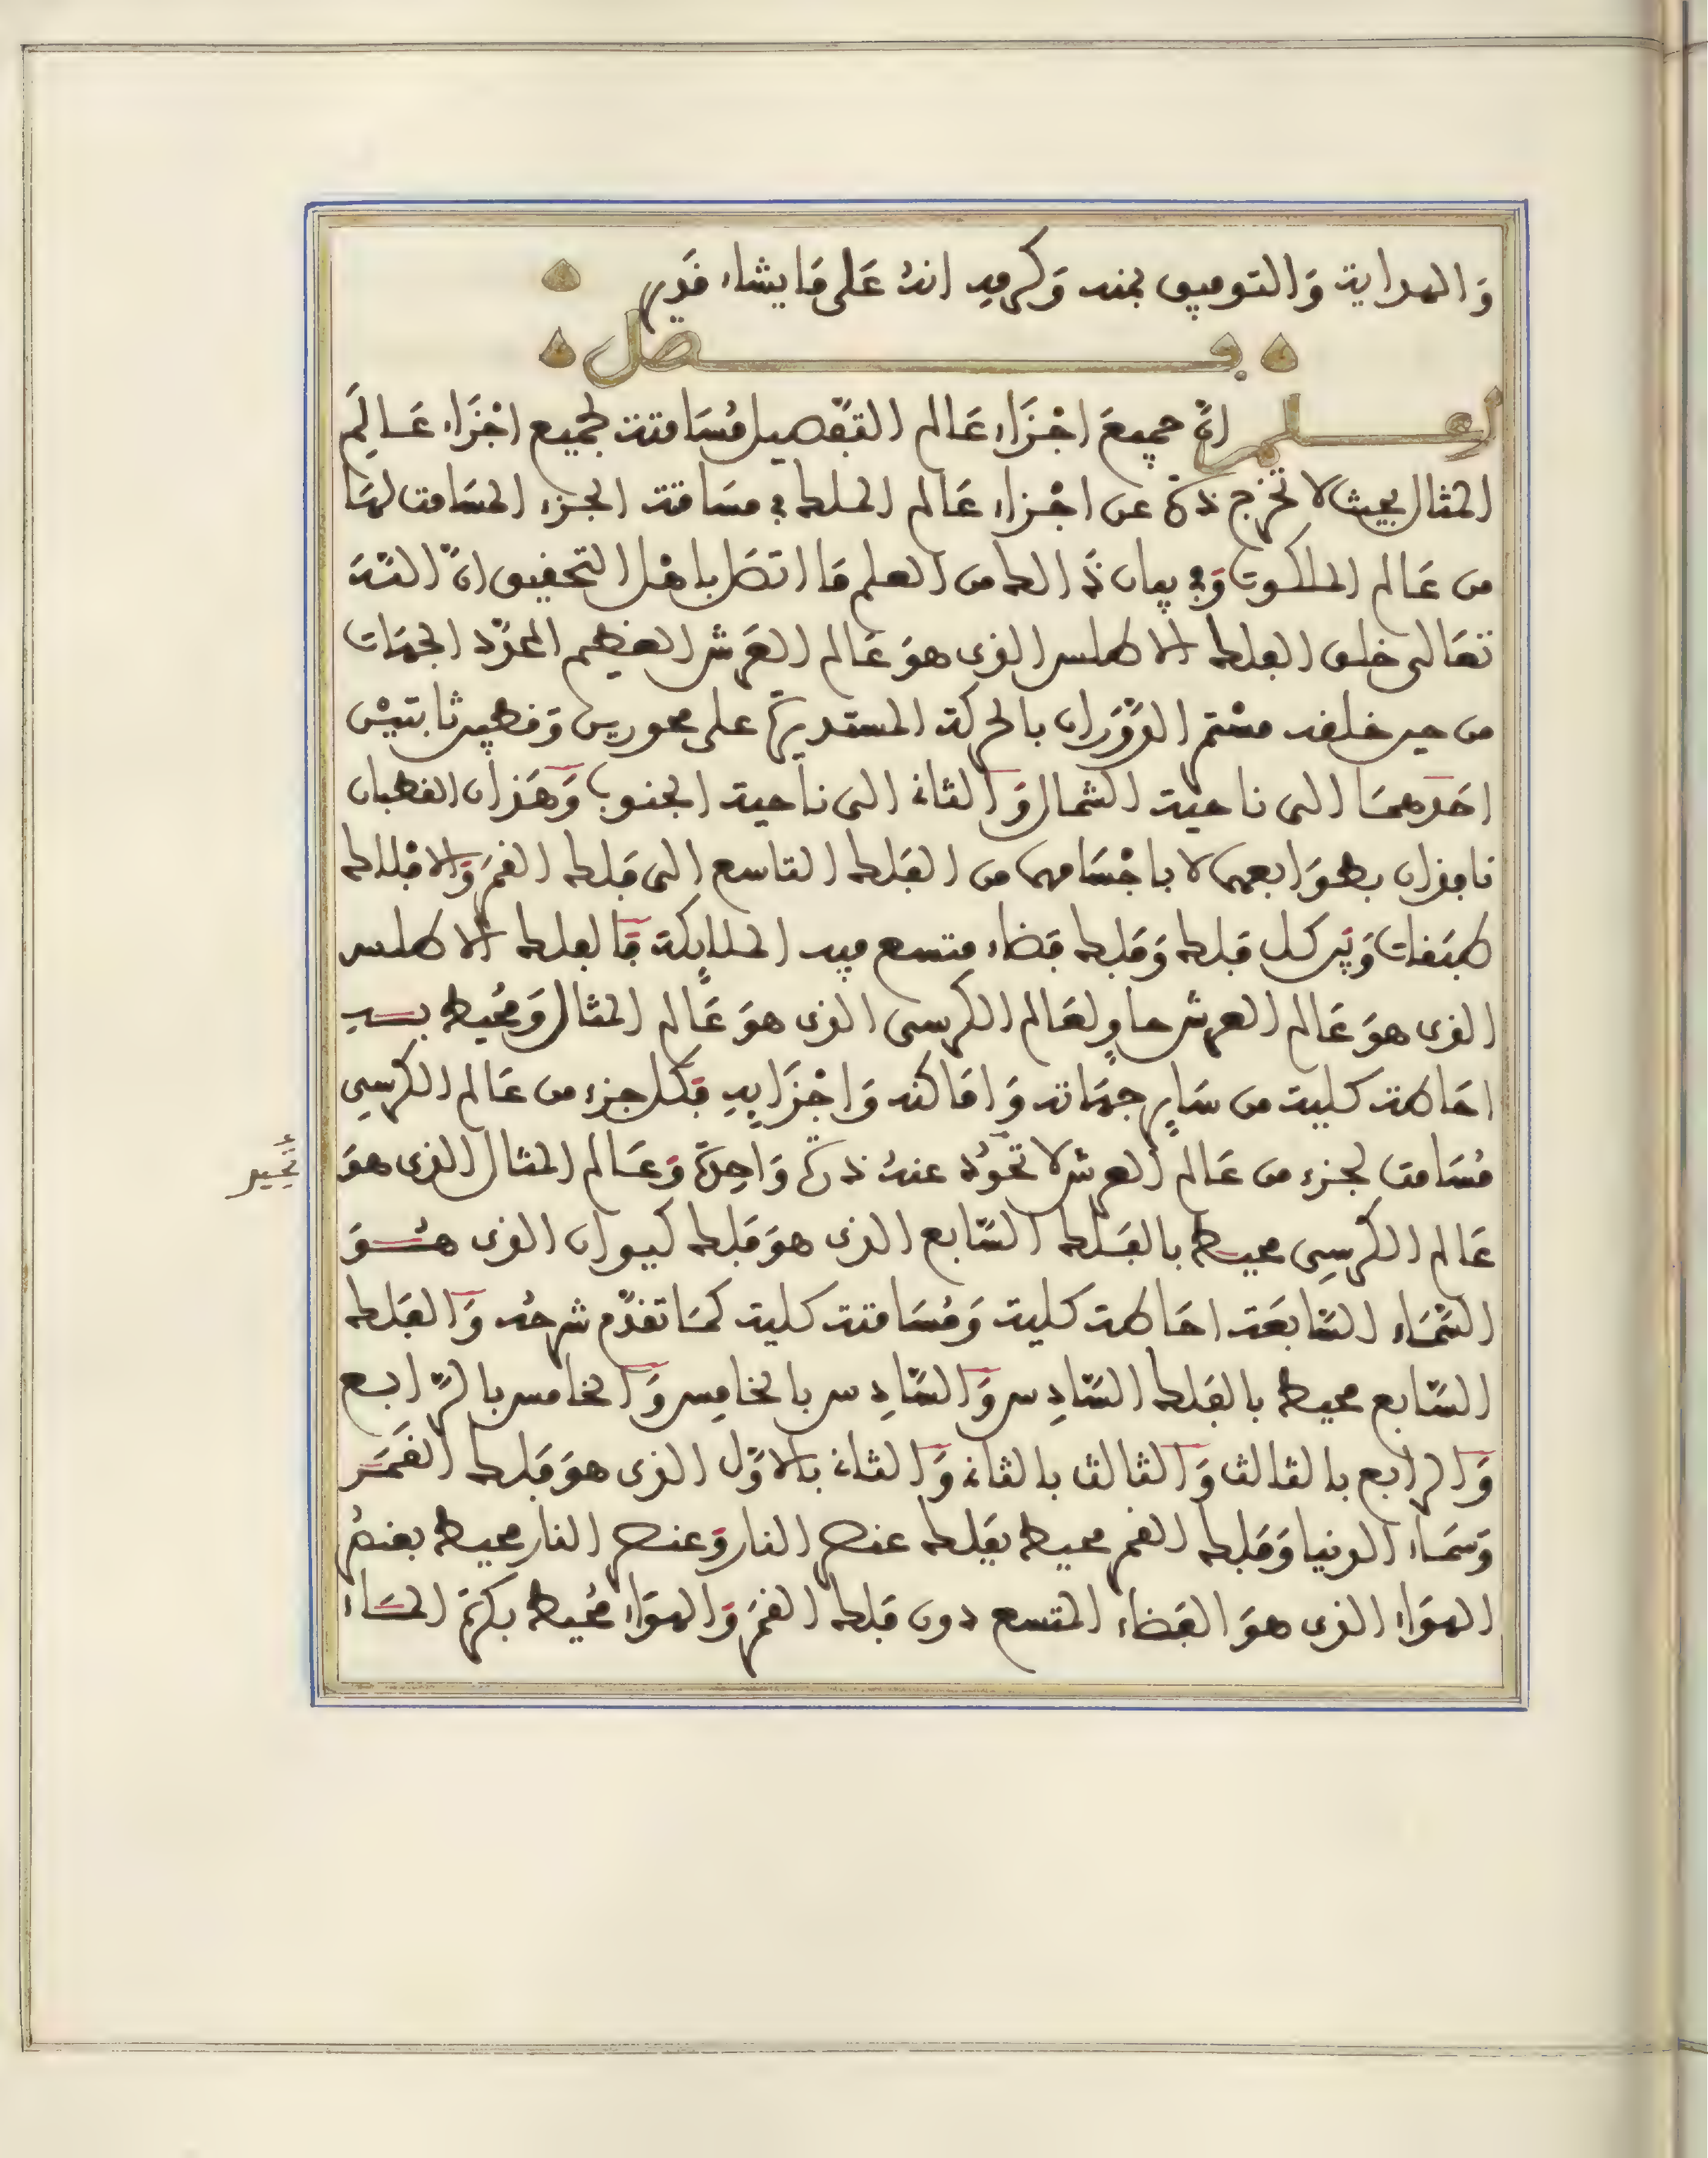 وَالهداية وَالتوفيق بمنه وَكرمه انهُ عَلى مَا يشاء قَدير
فصل
اعلم انَّ جميعَ اجْزَاء عَالم التفصيل مُسَامتة لجميع اجْزَاء عَالَم
المثال بحيث لا تخرج ذرة عن اجْزاء عَالم الملك في مسَامتة الجزء المسَامت لهَا
من عَالم الملكوت وَفي بيان ذَالك من العلم مَا اتصَل باهْل التحقيق انَّ اللّهَ
تعَالى خلق الفلك الاطلس الذي هوَ عَالم العَرْش العَظيم المحدِّد الجهَات
من حين خلقه مسْتمر الدَّوَرَان بالحركة المستديرة على محورين وَقطبين ثابتيْن
احَدهمَا الى ناحية الشمال وَالثاني الى ناحية الجنوب وَهَذان القطبان
نافذان بطوَابعهما لا باجْسَامهما من الفَلك التاسع الى فَلك القمَر وَالافْلاك
طبَقات وَبَين كل فَلك وَفَلك فَضاء متسع فيه الملايكة فَالفلك الاطلس
الذي هوَ عَالم العرش حاوٍ لعَالم الكرسي الذي هوَ عَالم المثال وَمُحيط بــه
احَاطة كلية من سَايرِ جهَاته وَامَاكنه وَاجْزَايهِ فَكل جزء من عَالم الكرسِي
مُسَامت لجزء من عَالم العرش لا تحوُد عنهُ ذرة وَاحِدَة وَعَالم المثال الذي هوَ
تَحِيد
عَالم الكرْسِي محيط بالفَلك السَّابع الذي هوَ فَلك كيوان الذي هُــوَ
السَّمَاء السَّابعَة احَاطة كلية وَمُسَامتة كلية كمَا تقدَّم شرحُه وَالفَلك
السَّابع محيط بالفَلك السَّادِس وَالسَّادِس بالخامِس وَالخامس بالرَّابــع
وَالرابع بالثالث وَالثالث بالثاني وَالثاني بالاوَّل الذي هوَ فَلك القَمَــر
وَسَمَاء الدنيا وَفَلك القمر محيط بفَلك عنصر النار وَعنصر النار محيط بعنصُر
الهوَاء الذي هوَ الفَضاء المتسع دون فَلك القمَر وَالهوَاء مُحيط بكرَة المــاء